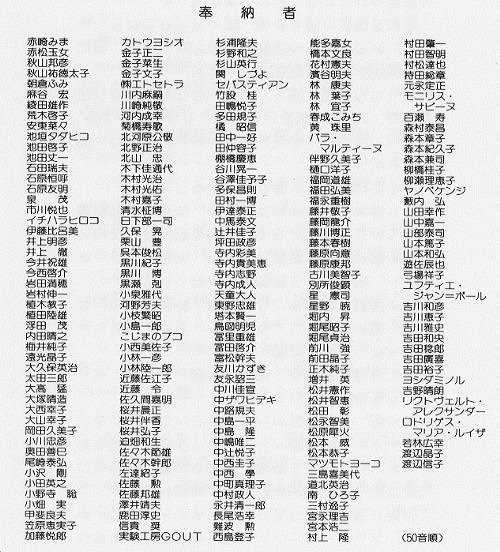 奉納者
赤崎みま
赤松玉女
秋山邦彦
秋山祐徳太子
朝倉ふみ
麻谷 宏
綾田雄作
荒木啓子
安東菜々
池垣タダヒコ
池田啓子
池田丈一
石田瑞夫
石原恒呼
石原友明
泉 茂
市川悦也
イチハラヒロコ
伊藤比呂美
井上明彦
井上 徹
今井祝雄
今西啓介
岩田満穂
岩村伸一
植木敦子
植田陸雄
浮田 茂
内田晴之
梅井純子
遠光晶子
大久保英治
太田三郎
大高 猛
大塚晴造
大西幸子
大山幸子
岡田久美子
小川忠彦
奥田善巳
尾崎泰弘
小沢 剛
小田英之
小野寺 聡
小畑 実
甲斐良夫
笠原恵実子
加藤悦郎
カトウヨシオ
金子正二
金子菜生
金子文子
㈱エトセトラ
川内麻綱
川崎純敬
河内成幸
菊橋寿歌
北河原公敬
北野正治
北山 忠
木下佳通代
木村光治
木村光佑
木村嘉子
清水柾博
日下部一司
久保 晃
栗山 豊
呉本俊松
黒川紀子
黒川 博
黒瀬 剋
小泉雅代
河野芳夫
小枝繁昭
小島一郎
こじまのブコ
小西美佐子
小林一彦
小林陸一郎
近藤佐江子
近藤 令
佐久間嘉明
桜井晨正
桜井伴香
桜井弘子
迫畑和生
佐々木節雄
佐々木幹郎
左達詔子
佐藤 勲
佐藤邦雄
澤井靖夫
鹿田淳史
信貴 奨
実験工房GOUT
杉浦隆夫
杉野和之
杉山英行
関 しづよ
セバスティアン
竹股 桂
田嶋悦子
多田規子
橘 昭信
田中一好
田仲容子
棚橋慶恵
谷川晃一
谷澤佳子子
多保昌則
田村一博
伊達泰正
中馬泰文
辻井佳子
坪田政彦
寺内彩美
寺内貴美恵
寺内志野
寺内成人
天童大人
東野忠雄
塔本賢一
鳥図明児
冨里重雄
冨田啓介
冨松幹夫
友川かずき
友永詔三
中川佳宣
中ザワヒデキ
中路規夫
中島一平
中島 隆
中嶋唯二
中辻悦子
中西圭子
中西 學
中町真理子
中村政人
永井清一郎
長尾浩幸
難波 勲
西島登子
能多嘉女
橋本文良
花村憲夫
濱谷明夫
林 康夫
林 葉子
林 宜子
春成こみち
黄 珠里
バラ・
マルティーヌ
伴野久美子
樋口洋子
福岡道雄
福田弘美
福永重樹
藤井敬子
藤岡龍介
藤川博正
藤本春樹
藤原向意
藤原慶邦
古川美智子
別所俊顕
星 憲司
星野 暁
堀内 昇
堀尾昭子
堀尾貞治
前川 強
前田晶子
正木純子
増井 英
松井憲作
松井智恵
松田 彰
松永智美
松原犀火
松本 威
松本恭子
マツモトヨーコ
三島喜美代
道北英治
南 ひろ子
三村逸子
宮永理吉
宮本浩二
村上 隆
村田肇一
村田智明
村松達也
持田総章
元永定正
モニリス・
サビーヌ
百瀬 寿
森村泰昌
森本章子
森本紀久子
森本兼司
柳橋桂子
柳瀬理恵子
ヤノベケンジ
薮内 弘
山田幸作
山中嘉一
山部泰司
山本篤子
山本和弘
遊佐辰也
弓場祥子
ユフティエ・
ジャン=ポール
吉川和彦
吉川恵子
吉川雅史
吉田和央
吉田稔郎
吉田廣喜
吉田裕子
ヨシダミノル
吉野晴朗
リウトヴェルト・
アレクサンダー
ロドリゲス・
マリア・ルイザ
若林広幸
渡辺晶子
渡辺信子
(50音順)